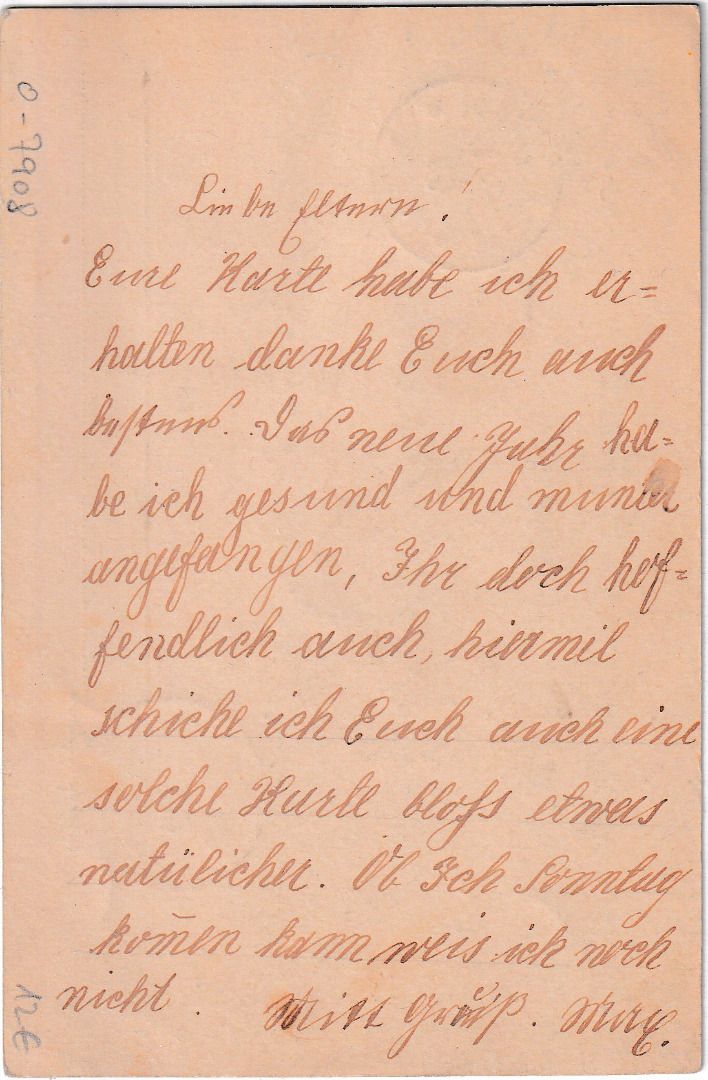 Liebe Eltern!
Eure Karte habe ich er=
halten danke Euch auch
bestens. Das neue Jahr ha=
be ich gesund und munter
angefangen, Ihr doch hof=
fendlich auch, hiermit
schicke ich Euch auch eine
solche Karte bloss etwas
natülicher. Ob Ich Sonntag
kom̄en kann weis ich noch
nicht. Mitt Gruß. Max.
0-7908
12€